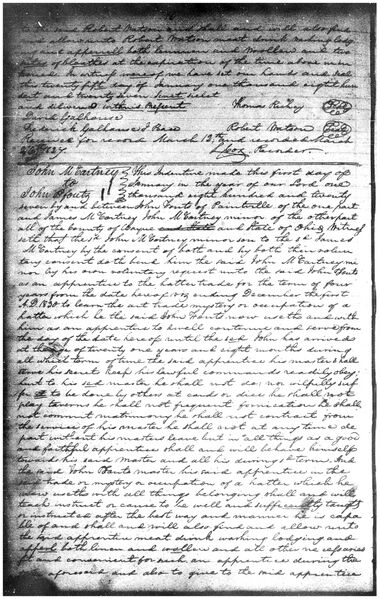 and allow unto Robert Watson meat drink washing lodg
ing and apparell both linnen and woollen and two
sutes of cloathes at the expiration of the time above men
tioned. In witness whereof we have set our hands and seals
this twenty fifth day of January one thousand eight hun
dred and twenty seven
and delivered in the presence Thomas Kirby Seal
David Galhouse
Frederick Galhouse Robert Watson Seal
Received for record March 13th and recorded March
1827. Recorder.
John McCartney This Indenture made this first day of
To January in the year of our Lord one
John Fouts thousand eight hundred and twenty
seven between John Fouts of of the one part
and James McCartney John McCartney minor of the other part
all of the County of Wayne and State of Ohio Witnes
seth that the sd John McCartney minor son to the sd James
McCartney by the consent of both and by both their volun
tary consent doth bind him the said John McCartney mi
nor by his own voluntary request unto the said John Fouts
as an apprentice to the hatter trade for the term of four
years from the date hereof and ending December the first
A.D. 1830 to learn the art trade mystry or occupation of a
hatter which he the said John Fouts now useth and with
him as an apprentice to dwell continue and serve from
the day of the date hereof until the sd John has arrived
at the age of twenty one years and eight months during
all which term of time the said apprentice his master shall
serve his secret keep his lawful commands readily obey;
hurt to his said master he shall not do; nor wilfully suf
fer it to be done by others at cards or dice he shall not
play taverns he shall not frequent fornication he shall
not commit matrimony he shall not contract from
the service of his master he shall not at any time de
part without his masters leave but in all things as a good
and faithful apprentice shall and will behave himself
towards his said master and all his during sd term. And
the said John Fouts master his said apprentice in the
said trade or mystery or occupation of a hatter which he
now useth with all things belonging shall and will
teach instruct or cause to be well and sufficiently taught
& instructed after the best way and manner he is capa
ble of and shall and will also find and allow unto
the said apprentice meat drink washing lodging and
apparel both linen and woollen and all other necessaries
fit and convenient for such an apprentice during the
term aforesaid and also to give to the said apprentice